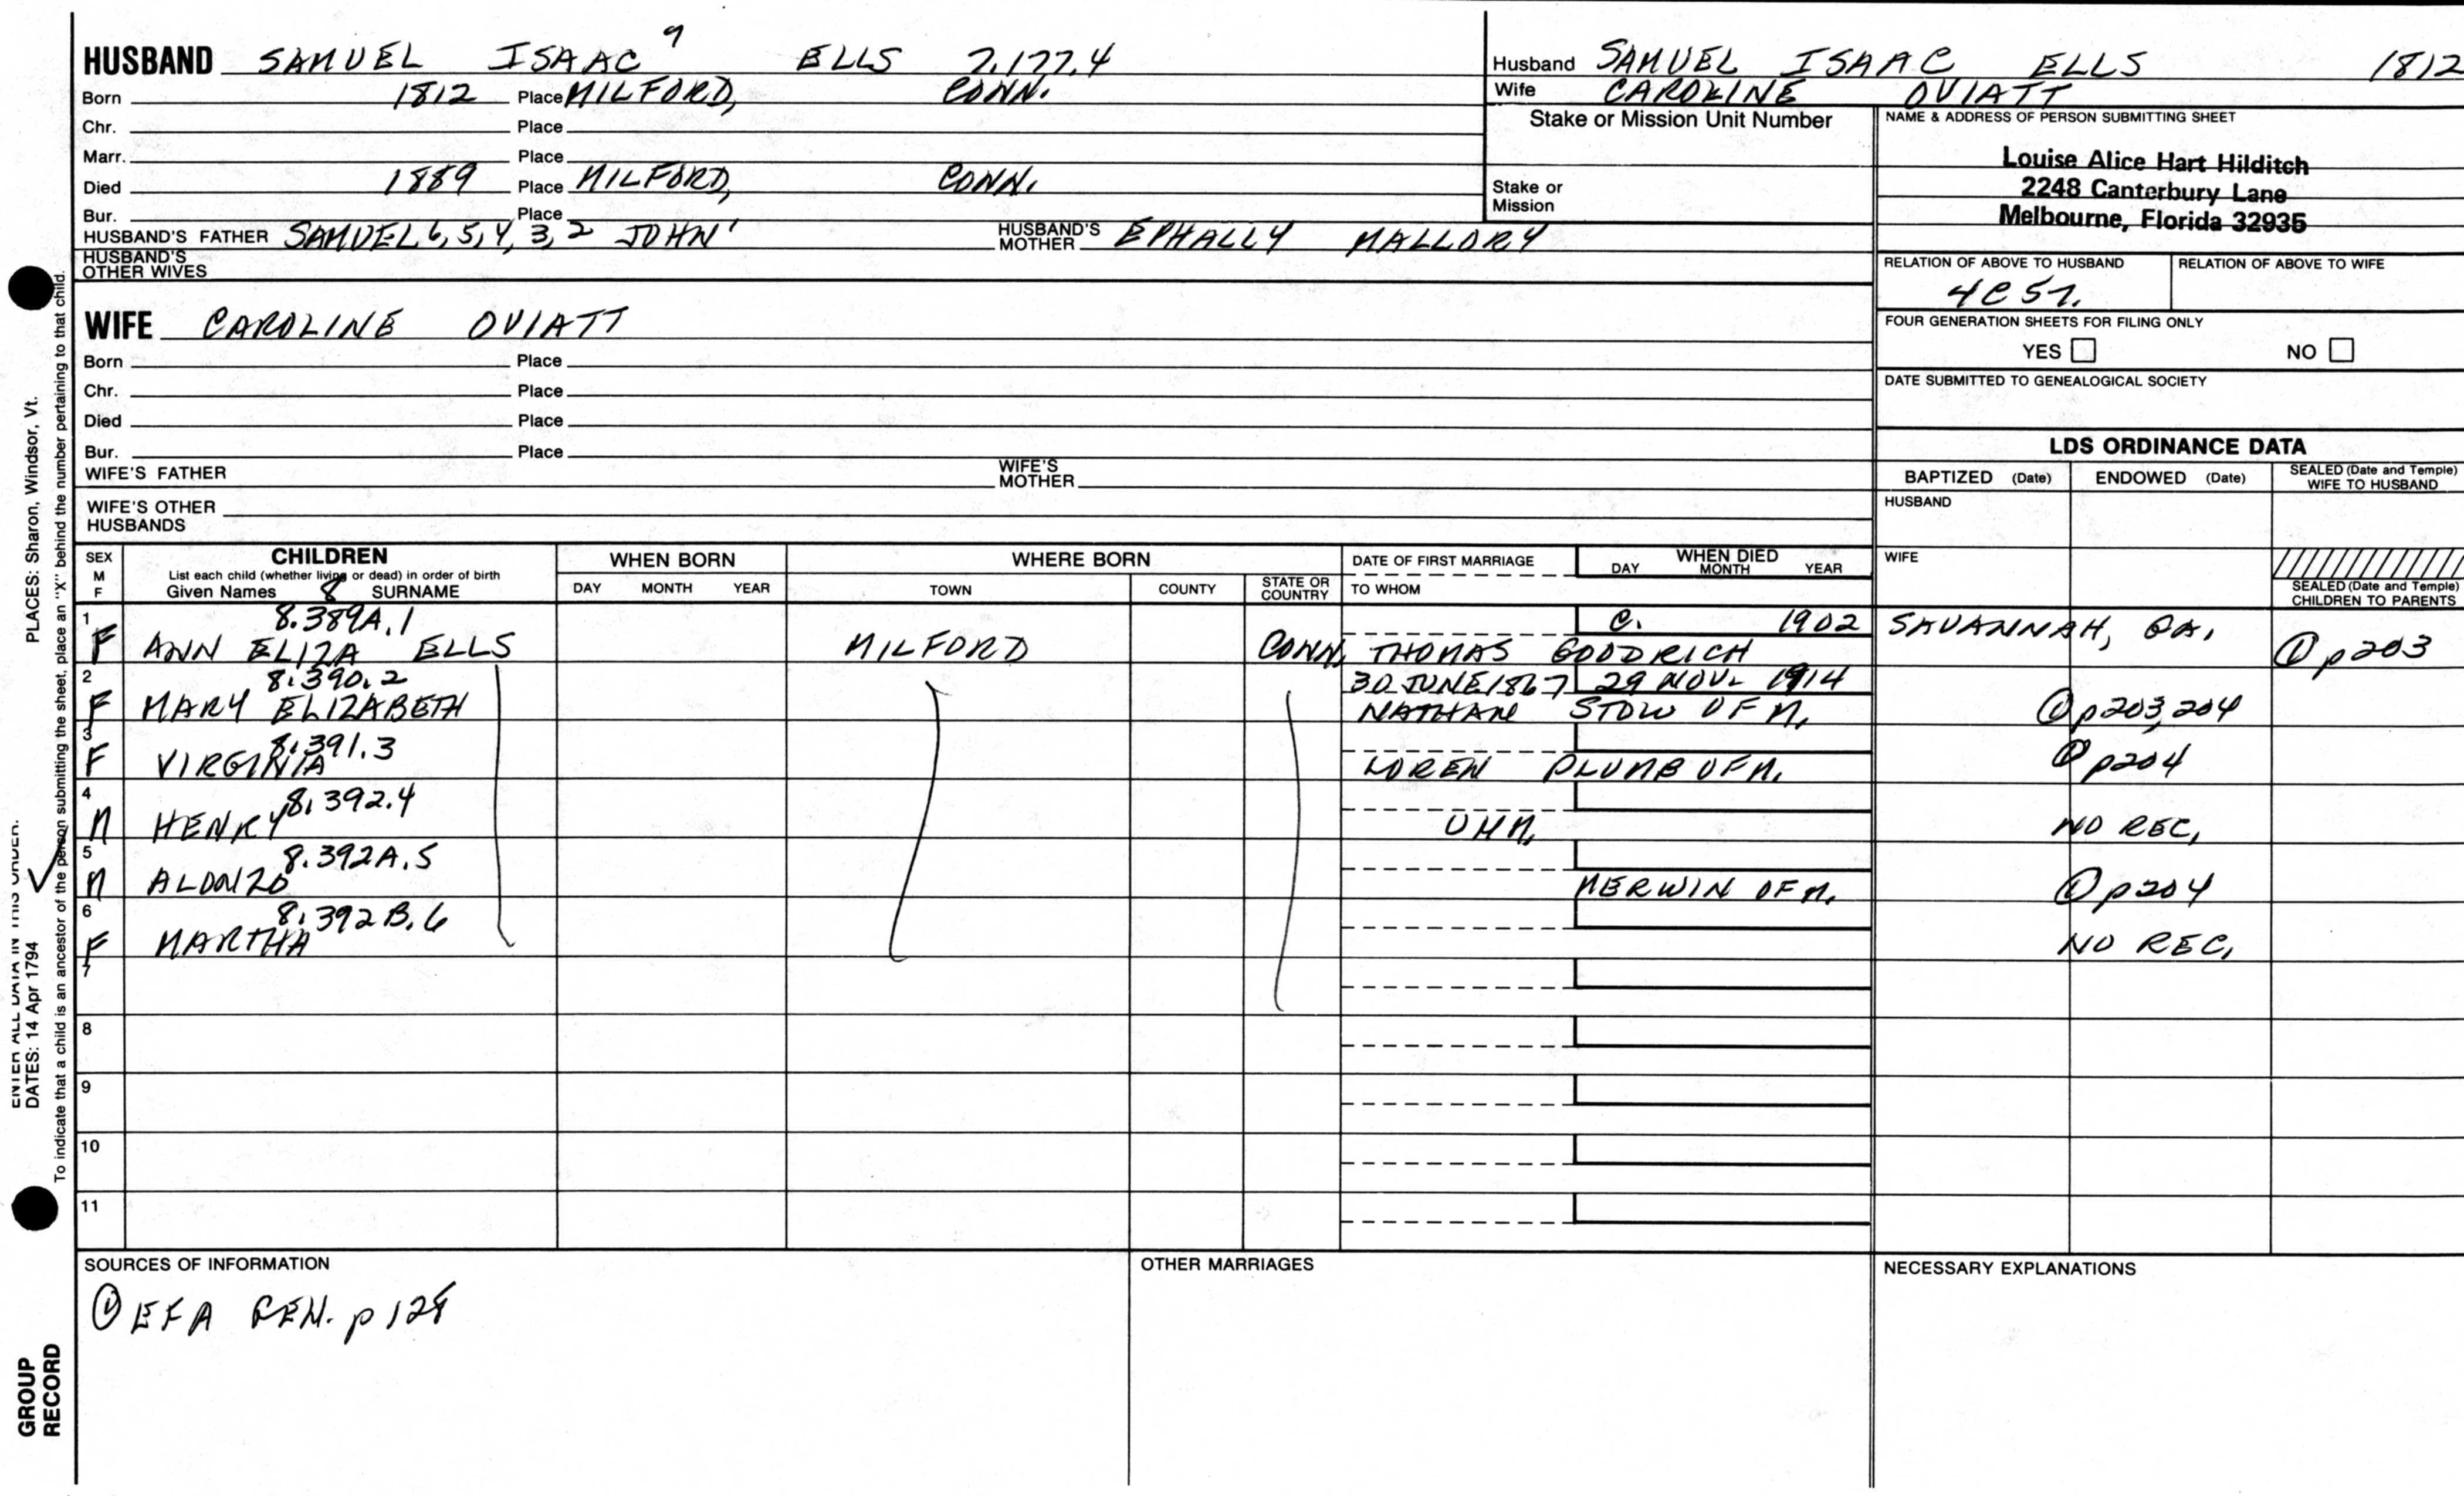 HUSBAND SAMUEL ISAAC 7 ELLS 7.177.4
Born 1812 Place MILFORD, CONN.
Chr. Place
Marr. Place
Died 1889 Place MILFORD, CONN.
Bur. Place
HUSBAND'S FATHER SAMUEL 6, 5, 4, 3, 2 JOHN 1 HUSBAND'S MOTHER EPHALLY MALLORY
HUSBAND'S OTHER WIVES
WIFE CAROLINE OVIATT
Born Place
Chr. Place
Died Place
Bur. Place
WIFE'S FATHER WIFE'S MOTHER
WIFE'S OTHER HUSBANDS
Husband SAMUEL ISAAC ELLS 1812
Wife CAROLINE OVIATT
Stake or Mission Unit Number
Stake or Mission
NAME & ADDRESS OF PERSON SUBMITTING SHEET
Louise Alice Hart Hilditch
2248 Canterbury Lane
Melbourne, Florida 32935
RELATION OF ABOVE TO HUSBAND RELATION OF ABOVE TO WIFE
4C5
FOUR GENERATION SHEETS FOR FILING ONLY
YES NO
DATE SUBMITTED TO GENEALOGICAL SOCIETY
LDS ORDINANCE DATA
BAPTIZED (Date) ENDOWED (Date) SEALED (Date and Temple) WIFE TO HUSBAND
HUSBAND
WIFE
SEALED (Date and Temple) CHILDREN TO PARENTS
SEX M F CHILDREN WHEN BORN WHERE BORN DATE OF FIRST MARRIAGE WHEN DIED
List each child (whether living or dead) in order of birth
Given Names 8 SURNAME DAY MONTH YEAR TOWN COUNTY STATE OR COUNTRY TO WHOM DAY MONTH YEAR
1 8.389A.1 C. 1902 SAVANNAH, GA.
F ANN ELIZA ELLS MILFORD CONN. THOMAS GOODRICH ① p203
2 8.390.2 30 JUNE 1867 29 NOV 1914
F MARY ELIZABETH NATHAN STOW OF M. ① p203,204
3 8.391.3
F VIRGINIA LOREN PLUMB OF M. ① p204
4 8.392.4
M HENRY UNM. NO REC.
5 8.392A.5
M ALONZO MERWIN OF M. ① p204
6 8.392B.6
F MARTHA NO REC.
7
8
9
10
11
SOURCES OF INFORMATION OTHER MARRIAGES NECESSARY EXPLANATIONS
① EFA GEN. p 128
PLACES: Sharon, Windsor, Vt.
ENTER ALL DATA IN THIS ORDER:
DATES: 14 Apr 1794
To indicate that a child is an ancestor of the person submitting the sheet, place an "X" behind the number pertaining to that child.
GROUP RECORD